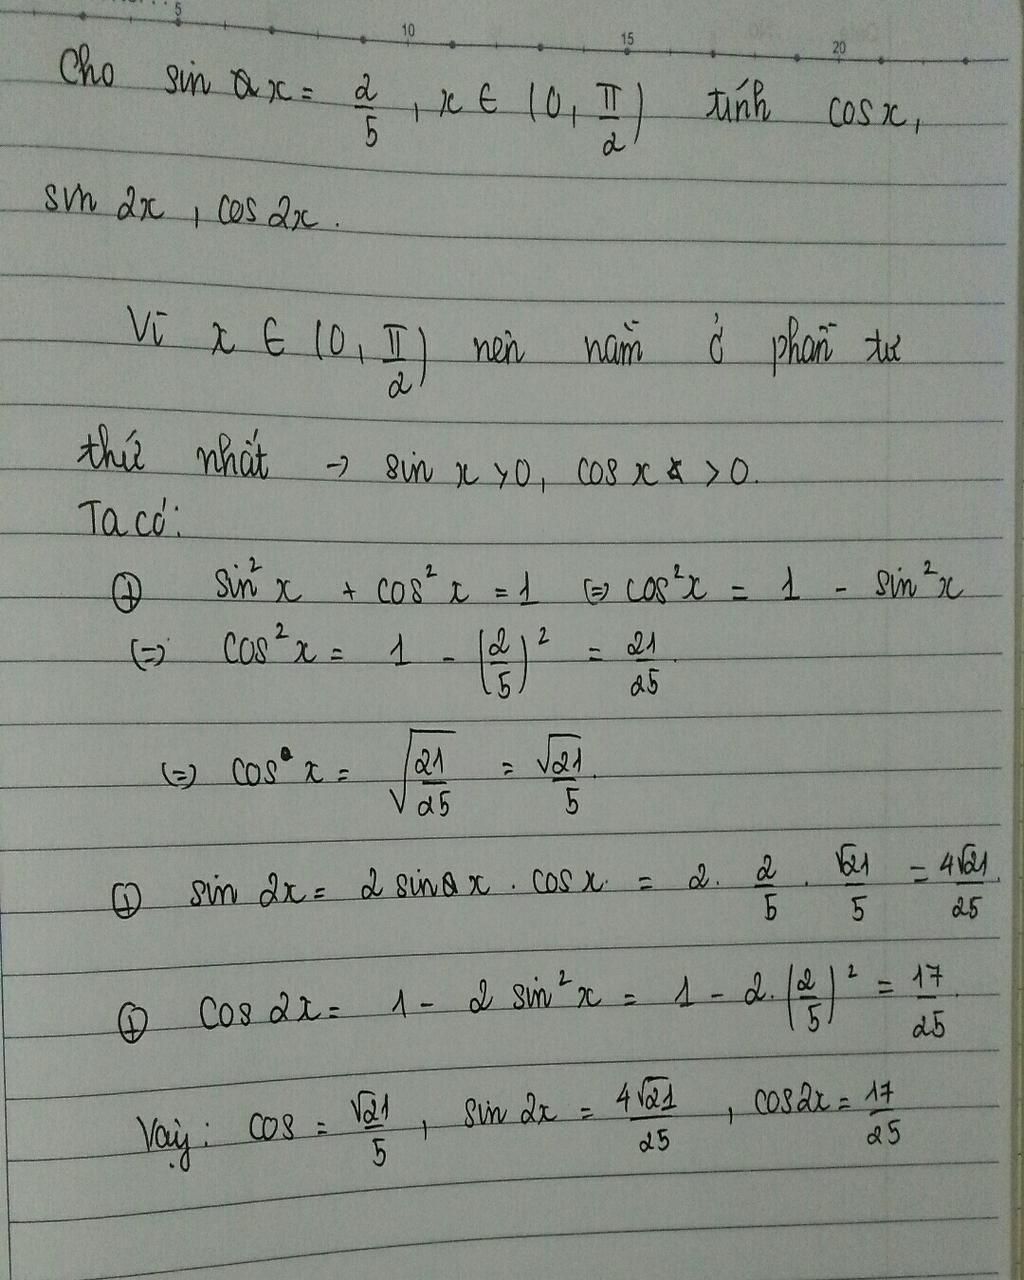 5 10 15 20
Cho sin x = 2/5 , x ∈ (0, π/2) tính cos x,
sin 2x , cos 2x .
Vì x ∈ (0, π/2) nên nằm ở phần tư
thứ nhất → sin x > 0, cos x > 0.
Ta có:
⊕ sin² x + cos² x = 1 ⇔ cos² x = 1 - sin² x
⇔ cos² x = 1 - (2/5)² = 21/25.
⇔ cos x = √(21/25) = √21/5.
⊕ sin 2x = 2 sin x . cos x. = 2. 2/5 . √21/5 = 4√21/25.
⊕ cos 2x = 1 - 2 sin² x = 1 - 2. (2/5)² = 17/25.
Vậy: cos = √21/5 , sin 2x = 4√21/25 , cos 2x = 17/25